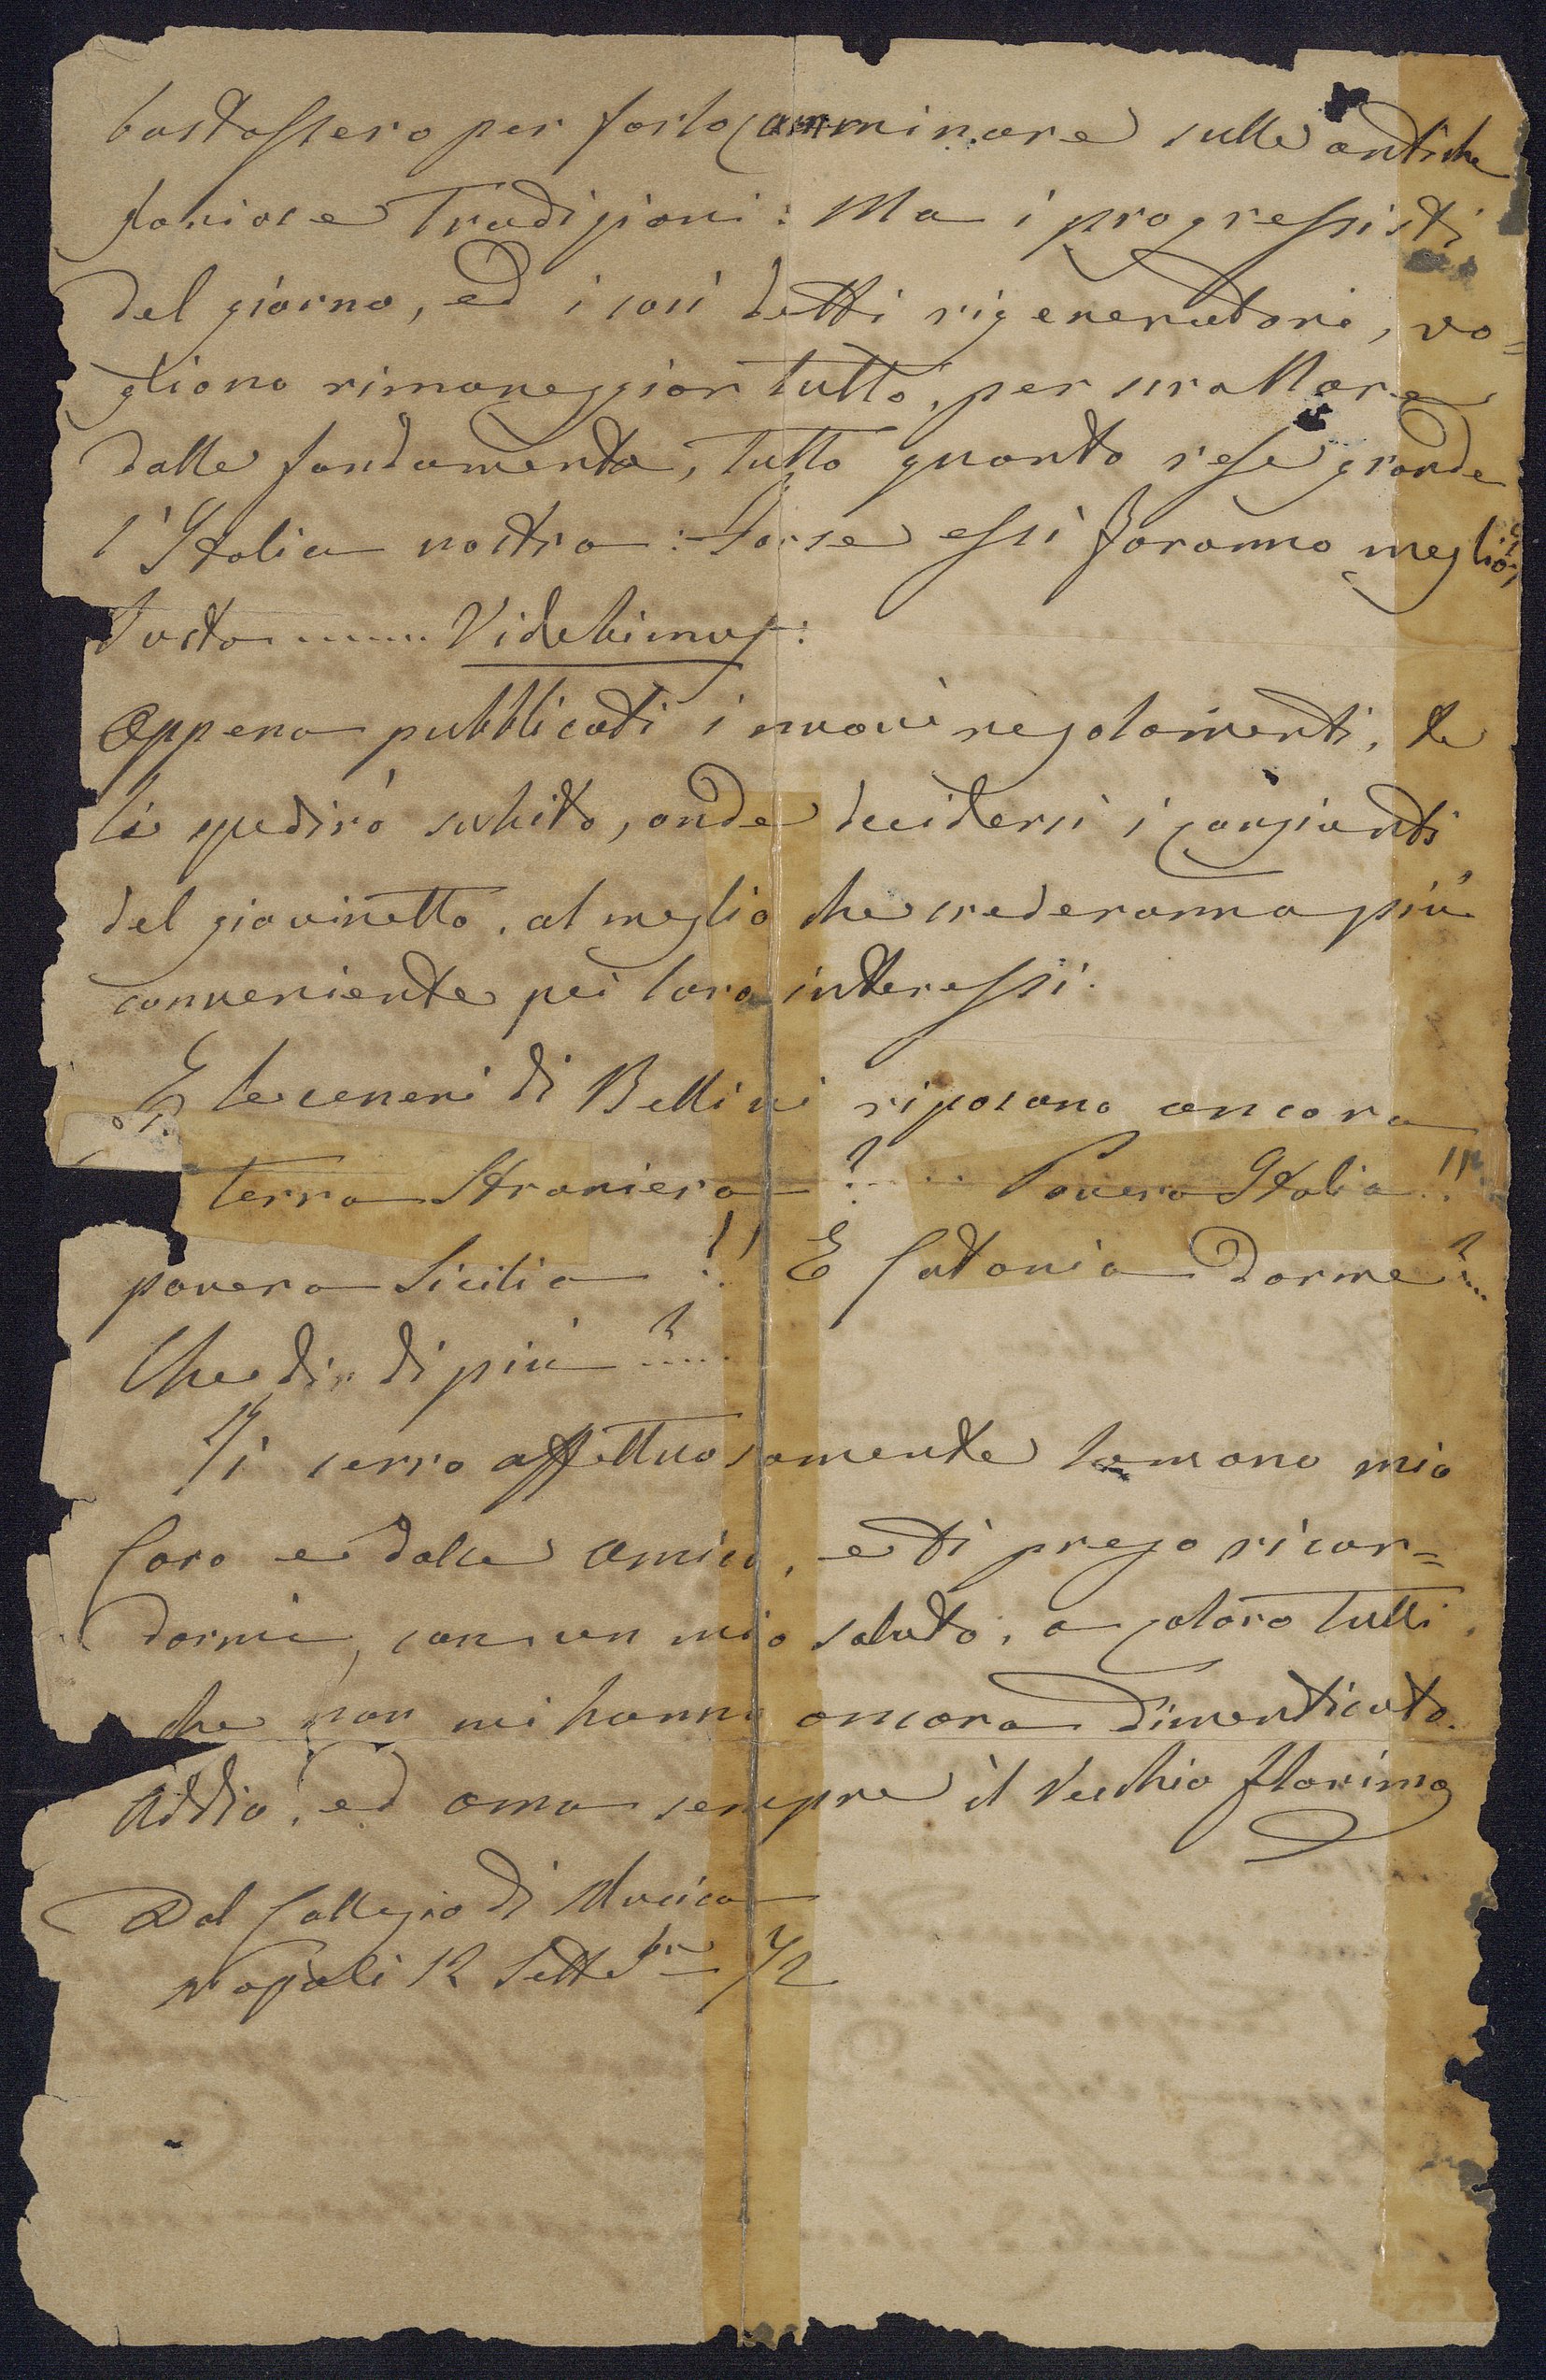 bastassero per farlo camminare sulle antiche
famose Tradizioni: Ma i progressisti
del giorno, ed i così detti rigeneratori, vo=
gliono rimaneggiar tutto, per scrollare
dalle fondamenta, tutto quanto rese grande
l'Italia nostra: Forse essi faranno meglio
basta ....... Videbimus:
Appena pubblicati i nuovi regolamenti, te
li spedirò subito, onde decidersi i congiunti
del giovinetto, al meglio che crederanno più
conveniente pei loro interessi.
E le ceneri di Bellini riposano ancora
terra straniera ? ..... Povera Italia !!!
povera Sicilia !! E Catania dorme? ...
Che dir di più ? .....
Ti serro affettuosamente la mano mio
Caro e dolce amico, e ti prego ricor=
darmi, con un mio saluto, a coloro tutti
che non mi hanno ancora dimenticato.
Addio, ed ama sempre il vecchio Florimo
Dal Collegio di Musica
Napoli 12 Settebre 72